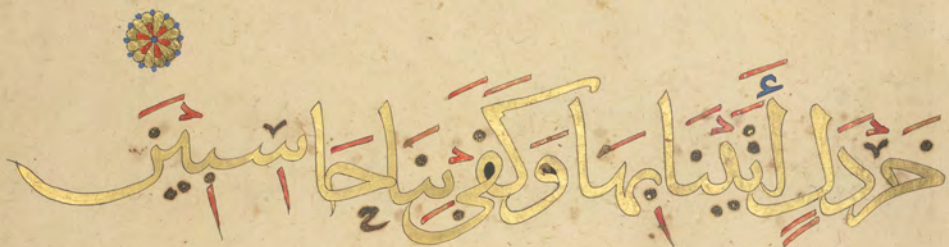 خَرْدَلٍ أَتَيْنَا بِهَا وَكَفَىٰ بِنَا حَاسِبِينَ